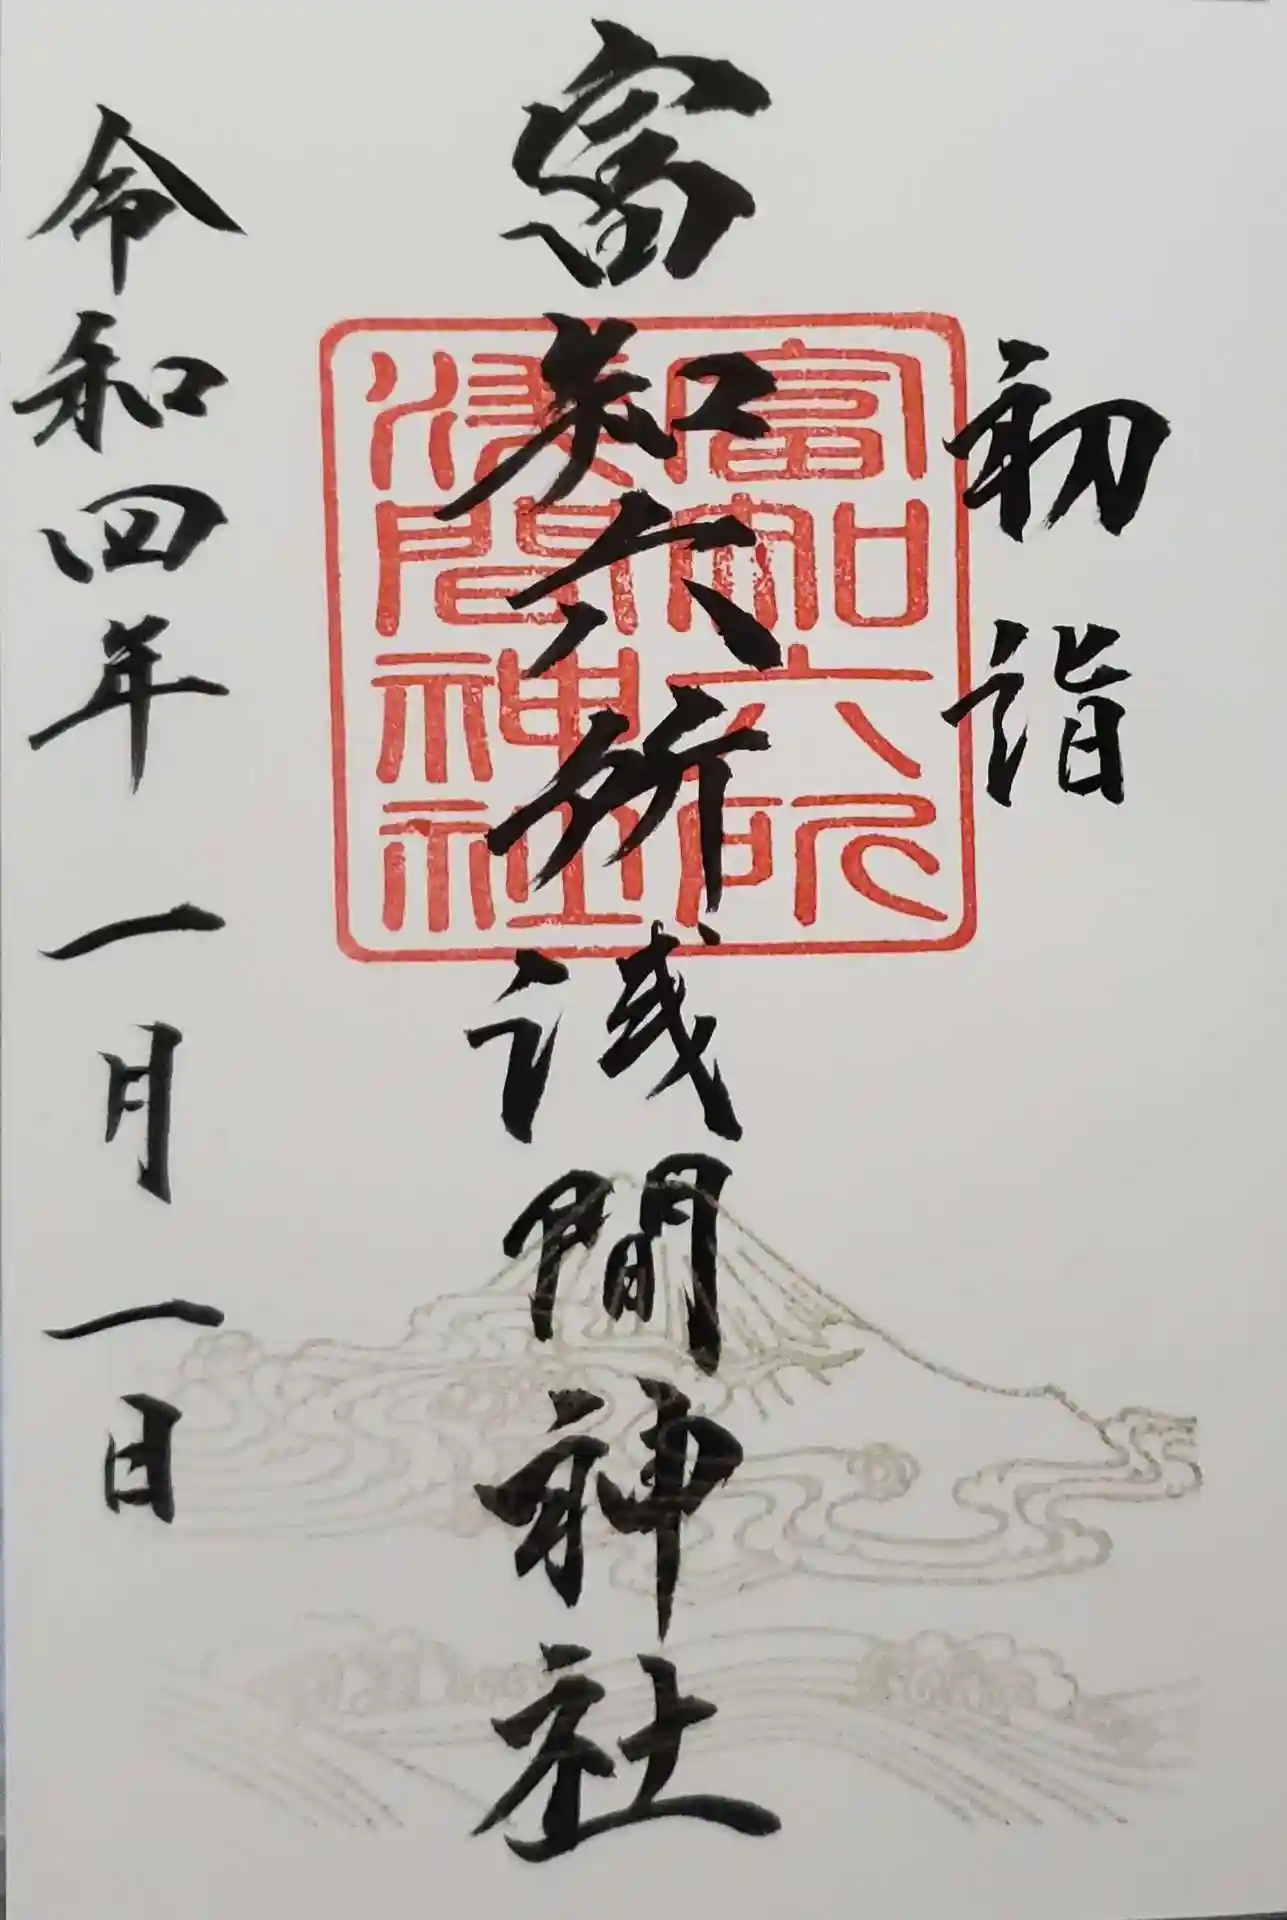 初詣
富知六所浅間神社
富知六所
浅間神社
令和四年 一月 一日